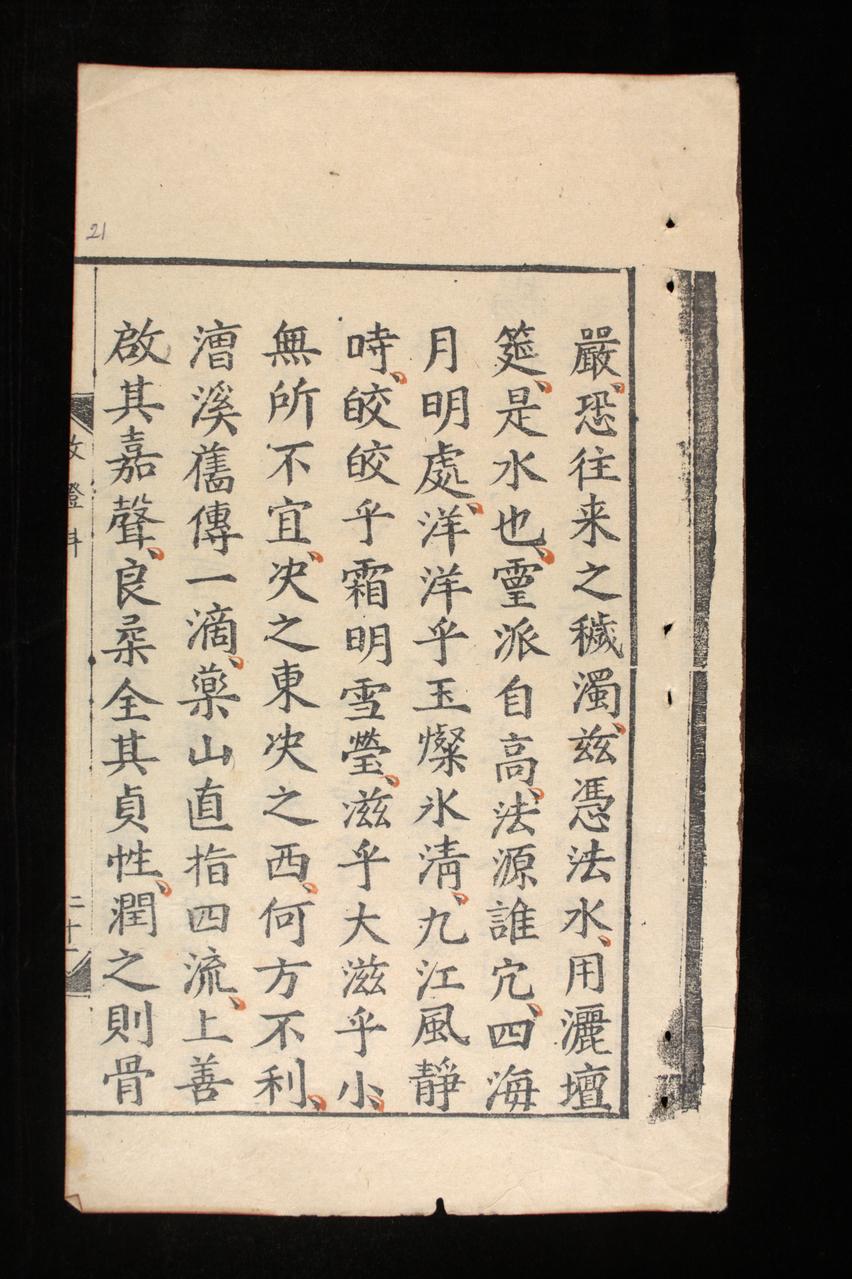 嚴、恐往来之穢濁、兹憑法水、用灑壇
筵、是水也、霊派自高、法源誰宂、四海
月明處、洋洋乎玉燦氷清、九江風靜
時、皎皎乎霜明雪瑩、滋乎大滋乎小、
無所不宜、决之東决之西、何方不利、
漕溪舊傳一滴、藥山直指四流、上善
啟其嘉聲、良柔全其貞性、潤之則骨
二十一
21